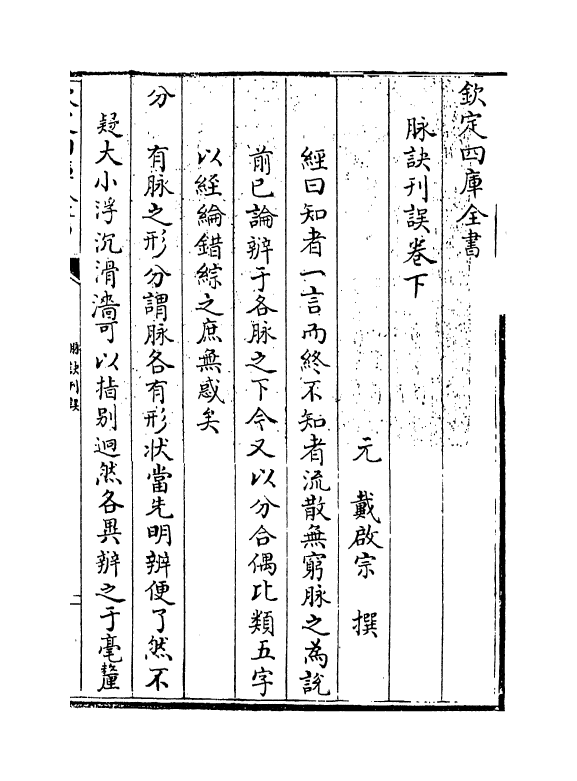 欽定四庫全書
脉訣刋誤卷下
元 戴啟宗 撰
經曰知者一言而終不知者流散無窮脉之為説
前已論辨于各脉之下今又以分合偶比類五字
以經綸錯綜之庶無惑矣
分 有脉之形分謂脉各有形狀當先明辨便了然不
疑大小浮沉滑濇可以指别迥然各異辨之于毫釐
脉訣刋誤